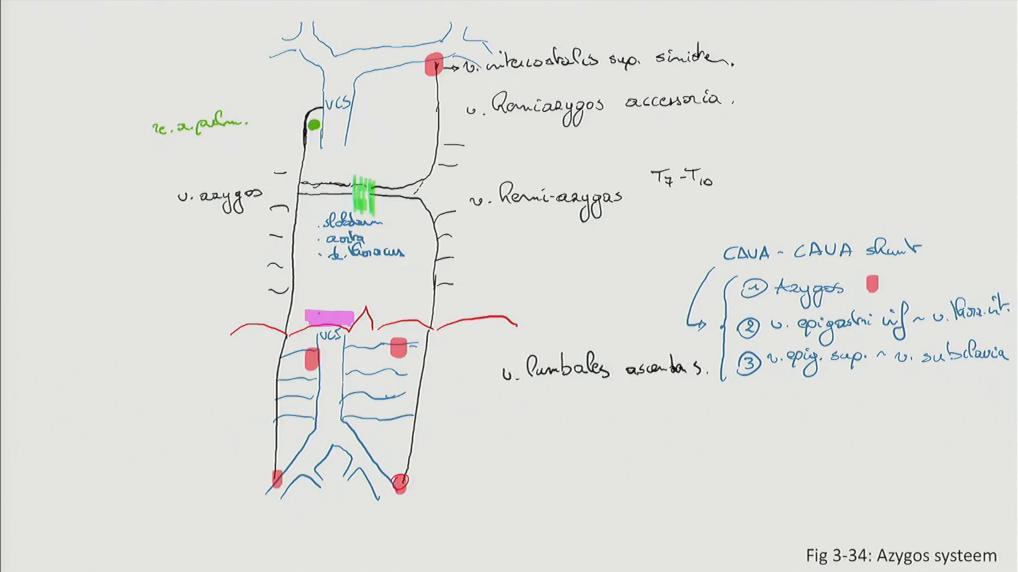 v. intercostalis sup. sinister.
VCS
v. Hemiazygos accessoria.
v. azygos
v. Hemi-azygos
T7-T10
. aorta
CAVA - CAVA shunt
① Azygos
② v. epigastri inf ~ v. thor. int.
③ v. epig. sup. ~ v. subclavia
VCS
v. lumbales ascendas.
Fig 3-34: Azygos systeem